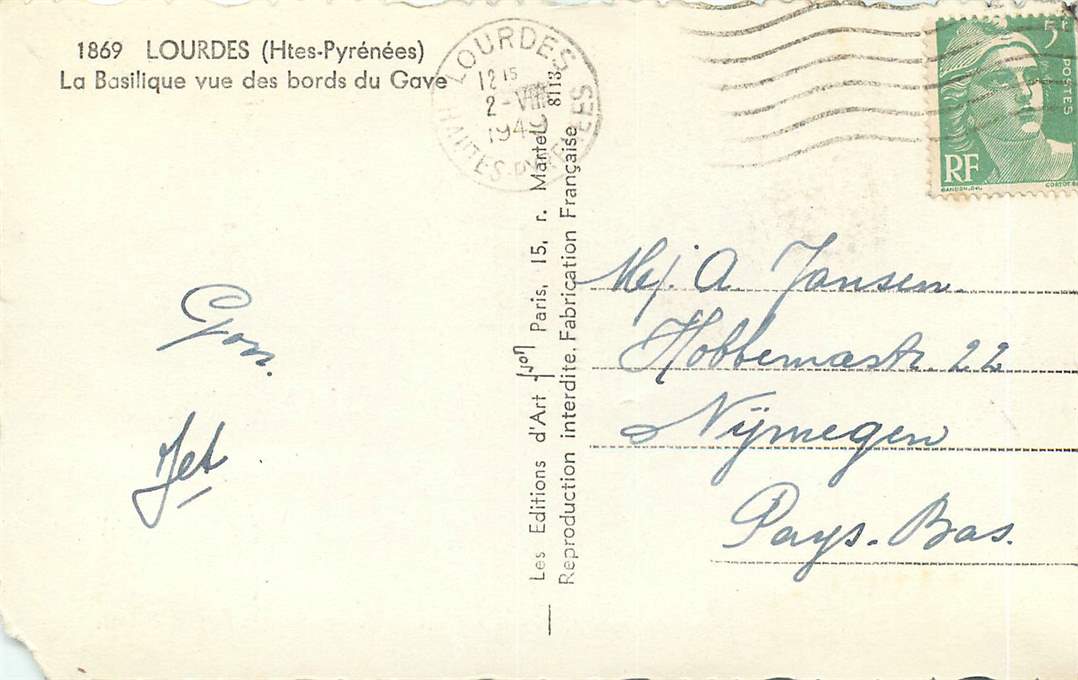 1869 LOURDES (Htes-Pyrénées)
La Basilique vue des bords du Gave
LOURDES
12 15
2-VIII
1949
HAUTES-PYRENEES
5F
POSTES
RF
GANDON.DEL.
Gon.
Jet
Les Editions d'Art Yvon Paris, 15, r. Martel 8113
Reproduction interdite. Fabrication Française
Mej. A. Jansen.
Hobbemastr. 22
Nijmegen
Pays-Bas.